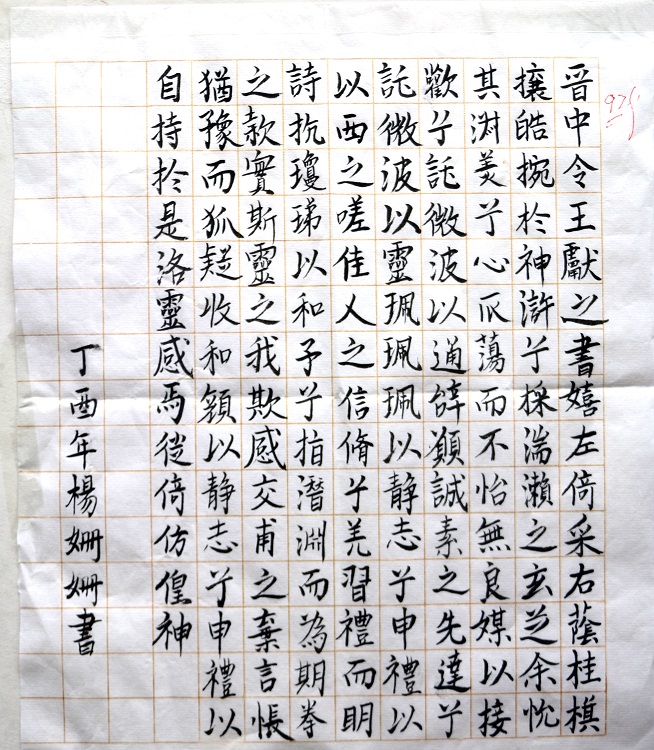 晋中令王獻之書嬉左倚采右蔭桂旗
攘皓捥於神滸兮採湍瀨之玄芝余悅
其淑美兮心爪蕩而不怡無良媒以接
歡兮託微波以通辝願誠素之先達兮
託微波以靈珮珮珮以静志兮申禮以
以西之嗟佳人之信脩兮羌習禮而明
詩抗瓊珶以和予兮指潛淵而為期拳
之款實斯靈之我欺感交甫之棄言悵
猶豫而狐疑收和顏以静志兮申禮以
自持於是洛靈感焉徙倚仿偟神
丁酉年楊姍姍書